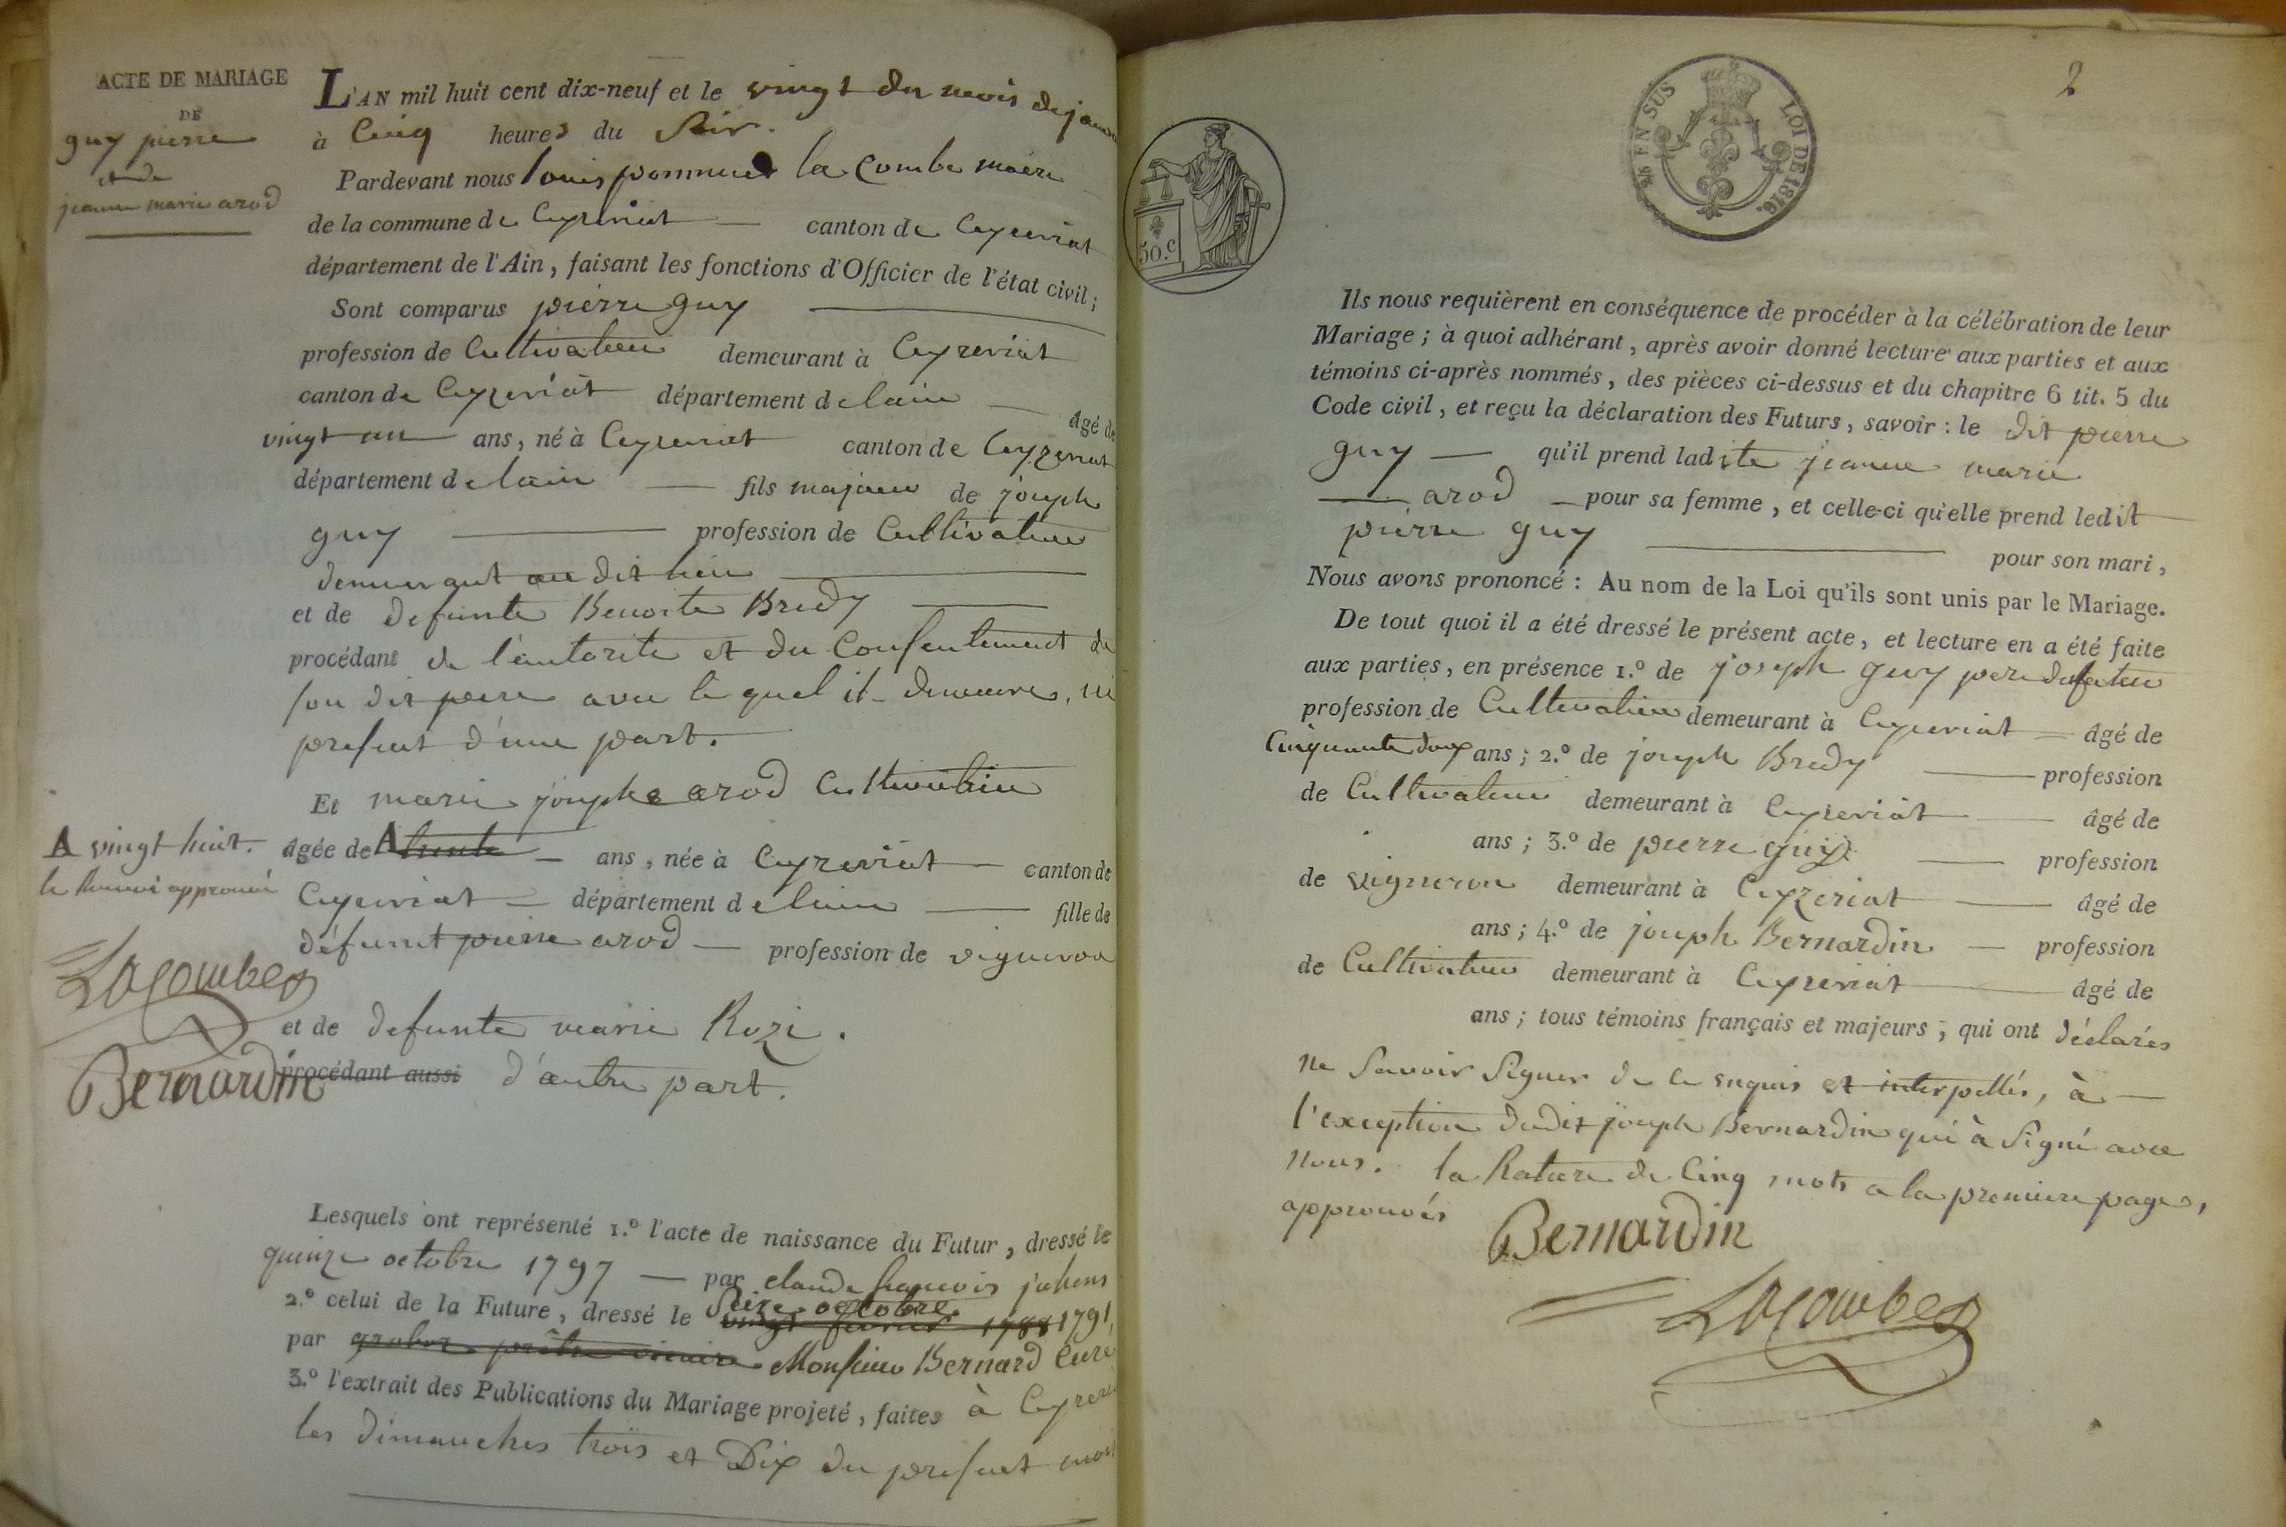 ACTE DE MARIAGE
DE
guy pierre
et de
jeanne marie arod
L'AN mil huit cent dix-neuf et le vingt du mois de janv
à Cinq heures du Soir.
Pardevant nous louis pommier la Combe maire
de la commune de Ceyzeriat canton de Ceyzeriat
département de l'Ain, faisant les fonctions d'Officier de l'état civil;
Sont comparus pierre guy
profession de Cultivateur demeurant à Ceyzeriat
canton de Ceyzeriat département de lain âgé de
vingt un ans, né à Ceyzeriat canton de Ceyzeriat
département de lain fils majeur de joseph
guy profession de Cultivateur
demeurant au dit lieu
et de defunte Benoite Bredy
procédant de l'autorite et du Consentement de
son dit pere avec le quel il demeure, ici
present d'une part.
Et marie josephe arod Cultivatrice
A vingt huit.
le Renvoi approuvé
Lacombe
Bernardin
âgée de A trente ans, née à Ceyzeriat canton de
Ceyzeriat département de lain fille de
défunt pierre arod profession de vigneron
et de defunte marie Rozi.
procédant aussi d'autre part.
Lesquels ont représenté 1.º l'acte de naissance du Futur, dressé le
quinze octobre 1797 par claude francois
2.º celui de la Future, dressé le Seize octobre vingt fevrier 1788 1791,
par prêtre vicaire Monsieur Bernard Curé
3.º l'extrait des Publications du Mariage projeté, faites à Ceyzeri
les dimanches trois et Dix du present mois
2
EN SUS
LOI DE 1816.
50.c
Ils nous requièrent en conséquence de procéder à la célébration de leur
Mariage; à quoi adhérant, après avoir donné lecture aux parties et aux
témoins ci-après nommés, des pièces ci-dessus et du chapitre 6 tit. 5 du
Code civil, et reçu la déclaration des Futurs, savoir: le dit pierre
guy qu'il prend ladite jeanne marie
arod pour sa femme, et celle-ci qu'elle prend ledit
pierre guy pour son mari,
Nous avons prononcé: Au nom de la Loi qu'ils sont unis par le Mariage.
De tout quoi il a été dressé le présent acte, et lecture en a été faite
aux parties, en présence 1.º de joseph guy pere du futur
profession de Cultivateur demeurant à Ceyzeriat âgé de
Cinquante deux ans; 2.º de joseph Bredy profession
de Cultivateur demeurant à Ceyzeriat âgé de
ans; 3.º de pierre guy profession
de vigneron demeurant à Ceyzeriat âgé de
ans; 4.º de joseph Bernardin profession
de Cultivateur demeurant à Ceyzeriat âgé de
ans; tous témoins français et majeurs, qui ont déclarés
ne Savoir Signer de ce enquis et interpellés, à
l'exception dudit joseph Bernardin qui à Signé avec
nous. la Rature de Cinq mots a la premiere page,
approuvés
Bernardin
Lacombe